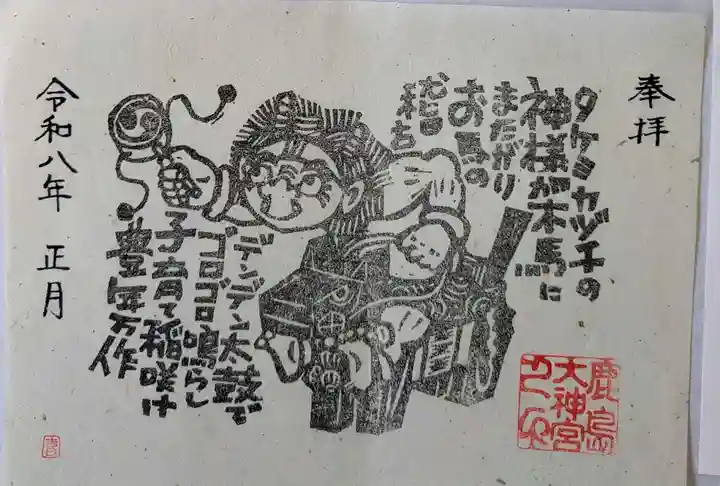 奉拝
タケミカヅチの
神様が木馬に
またがり
お馬の
稽古
デンデン太鼓で
ゴロゴロ鳴らし
子育て稲咲け
豊年万作
令和八年 正月
鹿島
大神宮